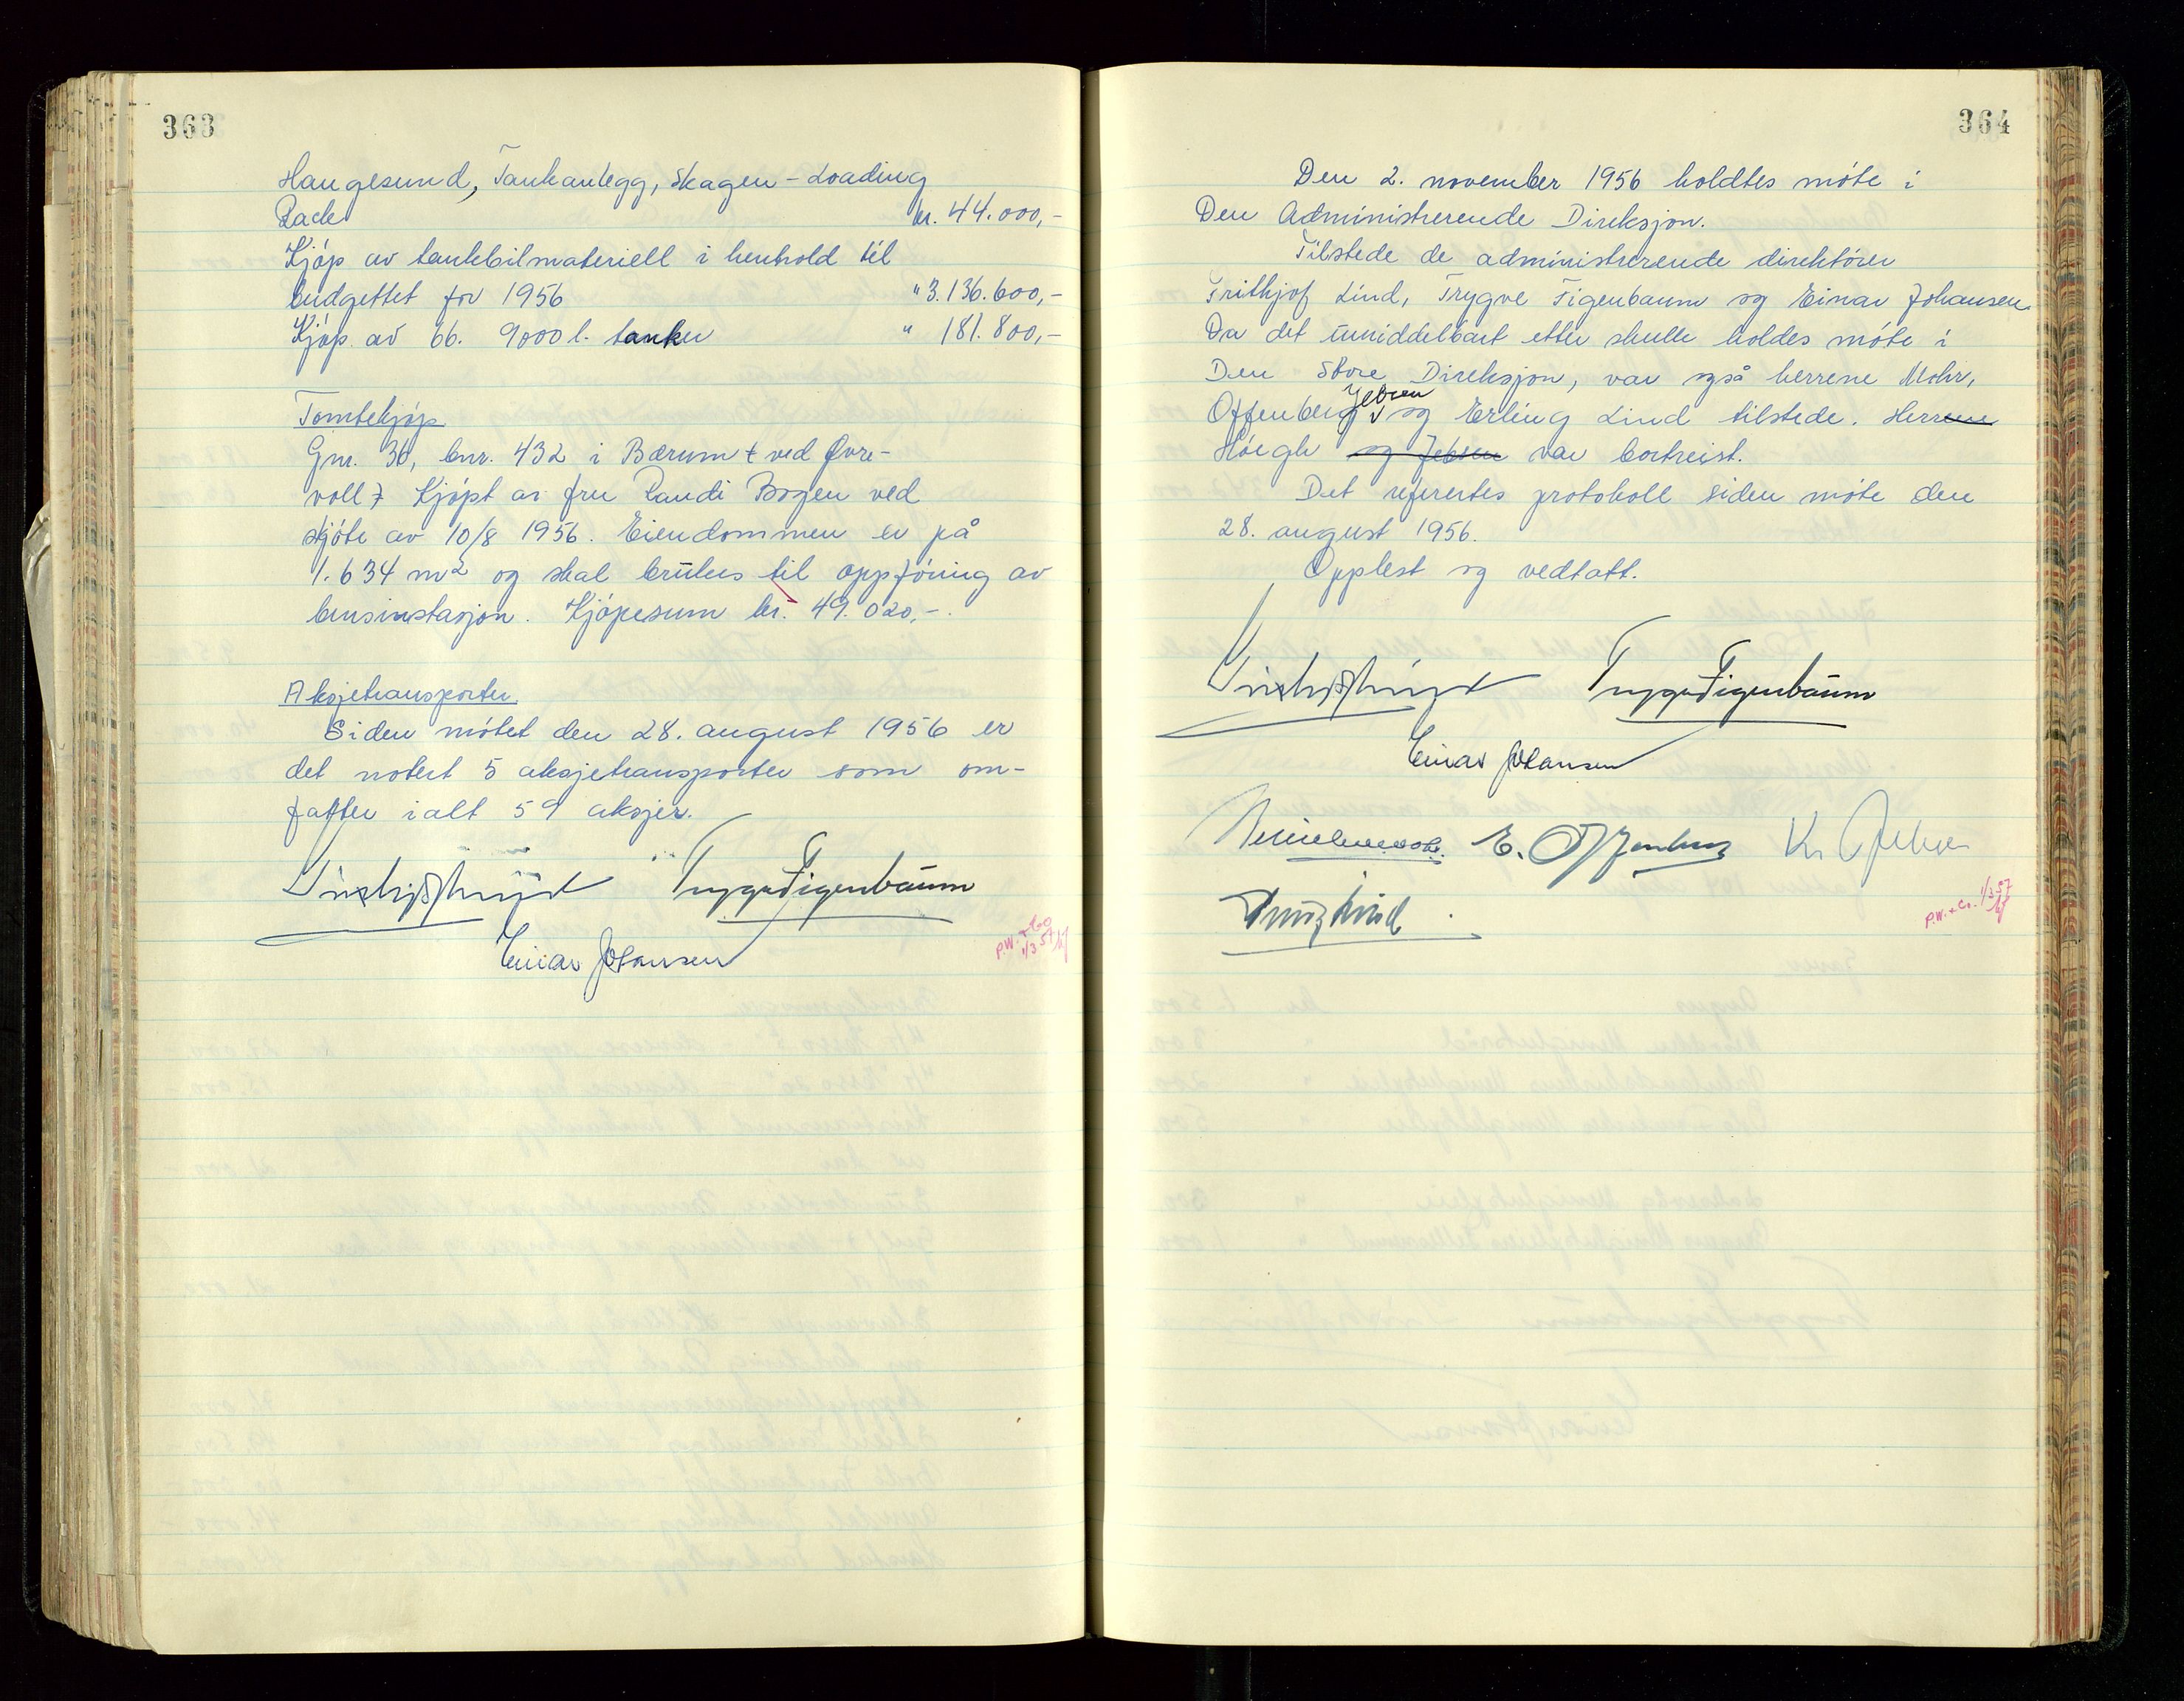 363
Haugesund, Tankanlegg, Skagen - Loading
Rack kr. 44.000,-
Kjøp av tankbilmateriell i henhold til
budgettet for 1956 " 3.136.600,-
Kjøp av 66. 9000 l. tanker " 181.800,-
Tomtekjøp
Gnr. 36, bnr. 432 i Bærum ( ved Øvre-
voll ) Kjøpt av fru Randi Bogen ved
skjøte av 10/8 1956. Eiendommen er på
1.634 m2 og skal brukes til oppføring av
bensinstasjon. Kjøpesum kr. 49.020,-.
Aksjetransporter.
Siden møtet den 28. august 1956 er
det notert 5 aksjetransporter som om-
fatter i alt 59 aksjer.
Trygve Figenbaum
Einar Johansen
P.W. & Co
1/3 57
364
Den 2. november 1956 holdtes møte i
Den Administrerende Direksjon.
Tilstede de administrerende direktører
Frithjof Lind, Trygve Figenbaum og Einar Johansen.
Da det umiddelbart etter skulle holdes møte i
Den Store Direksjon, var også herrene Mohr,
Offenberg Jebsen og Erling Lind tilstede. Herrene
Höegh og Jebsen var bortreist.
Det refertes protokoll siden møte den
28. august 1956.
Opplest og vedtatt.
Trygve Figenbaum
Einar Johansen
E. Offenberg Kr. Jebsen
Erling Lind
P.W. & Co. 1/3 57